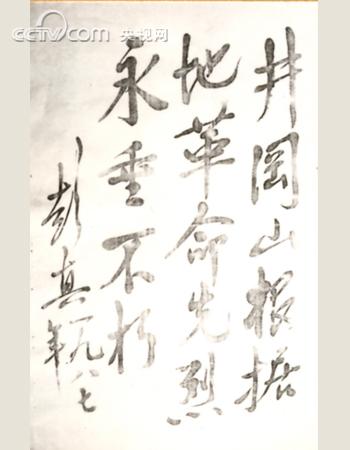 CCTV.com 央视网
井冈山根据
地革命先烈
永垂不朽
彭真
一九八七
年